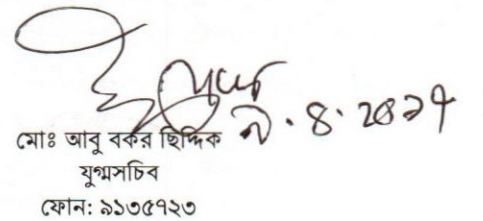 মোঃ আবু বকর ছিদ্দিক
যুগ্মসচিব
ফোন: ৯১৩৫৭২৩